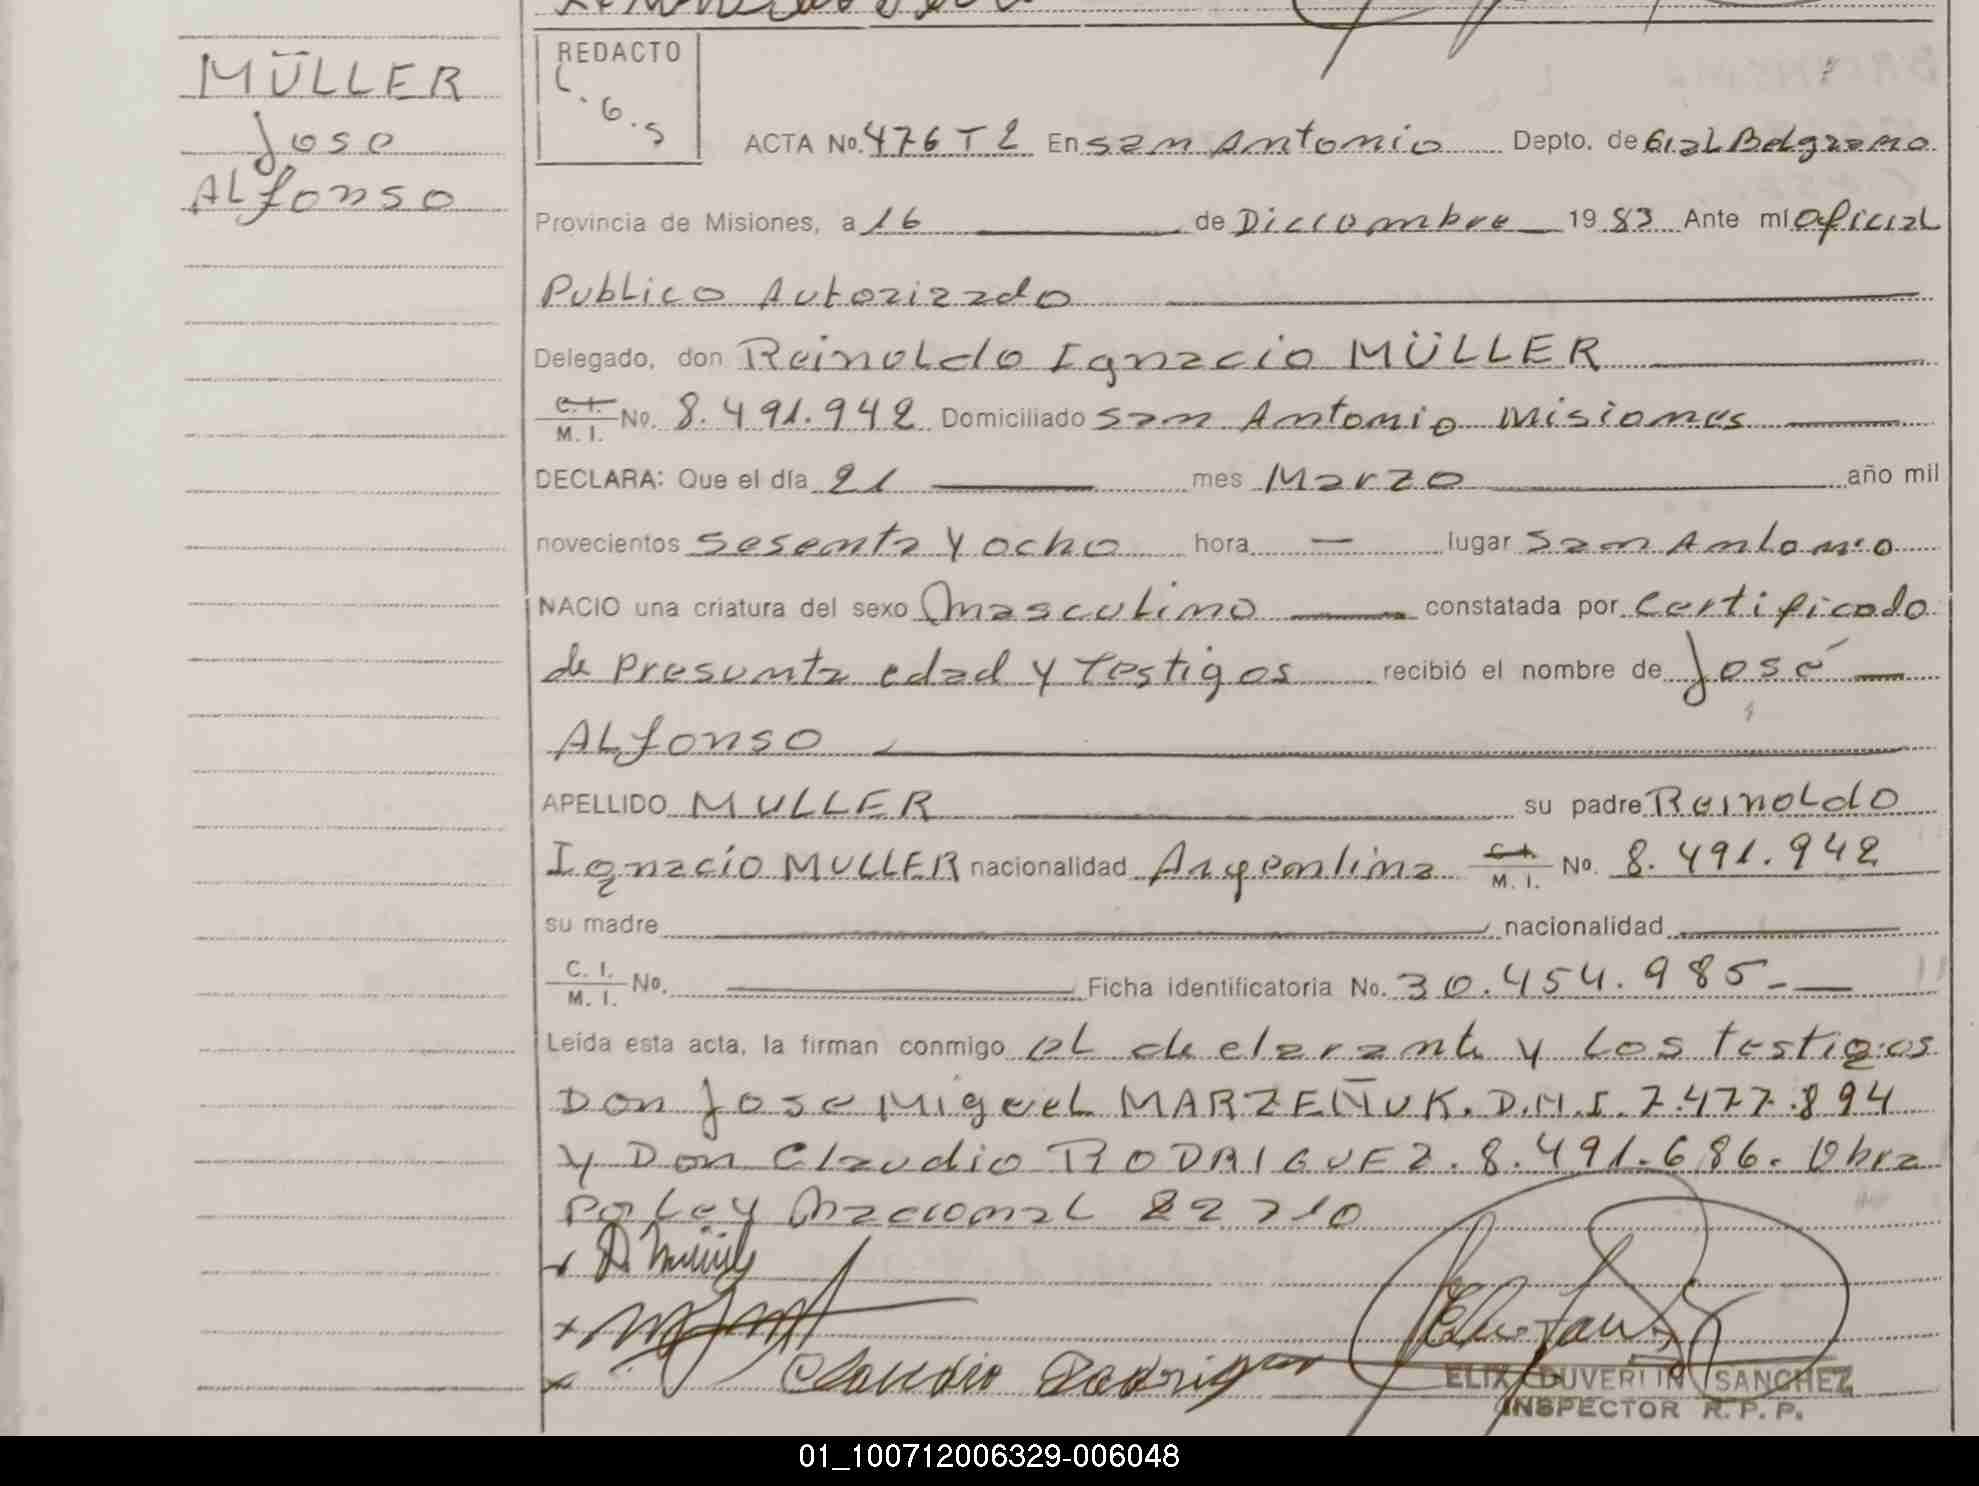 MÜLLER
José
ALfonso
REDACTO
L.G.S
ACTA No. 476 T 2 En San Antonio Depto. de Gral Belgrano
Provincia de Misiones, a 16 de Diciembre 1983 Ante mí Oficial
Publico Autorizado
Delegado, don Reinoldo Ignacio MÜLLER
C.I. M. I. No. 8.491.942 Domiciliado San Antonio Misiones
DECLARA: Que el día 21 mes Marzo año mil
novecientos Sesenta y ocho hora — lugar San Antonio
NACIO una criatura del sexo Masculino constatada por Certificado
de Presunta edad y Testigos recibió el nombre de José
ALfonso
APELLIDO MULLER su padre Reinoldo
Ignacio MULLER nacionalidad Argentina C.I. M. I. No. 8.491.942
su madre nacionalidad
C. I. M. I. No. Ficha identificatoria No. 30.454.985-
Leída esta acta, la firman conmigo el declarante y Los Testigos
Don José Miguel MARZEÑUK. D.N.I. 7.477.894
y Don Claudio RODRIGUEZ. 8.491.686. Obra
Por Ley Nacional 22710
Claudio Rodriguez
ELIX DUVERLIN SANCHEZ
INSPECTOR R. P. P.
01_100712006329-006048